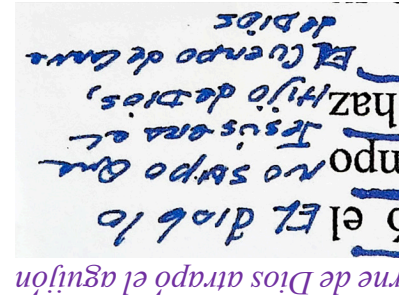 rne de Dios atrapó el aguijón
ó el EL diablo
mpo NO supo Que
Jesús era el
haz Hijo de Dios,
EL Cuerpo de Carne
de Dios